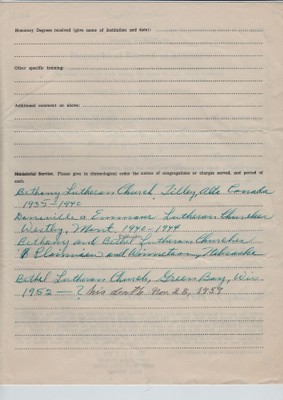 Honorary Degrees received (give name of institution and date):
Other specific training:
Additional comment on above:
Ministerial Service. Please give in chronological order the names of congregations or charges served, and period of
each.
Bethany Lutheran Church, Tilley, Alta Canada
1935-1940
Daneville & Emmaus Lutheran Churches
Westby, Mont. 1940-1944
Bethany and Bethel Lutheran Churches
and Nebraska
Bethel Lutheran Church, Green Bay, Wis.
1952 — ? his death Nov 28, 1959